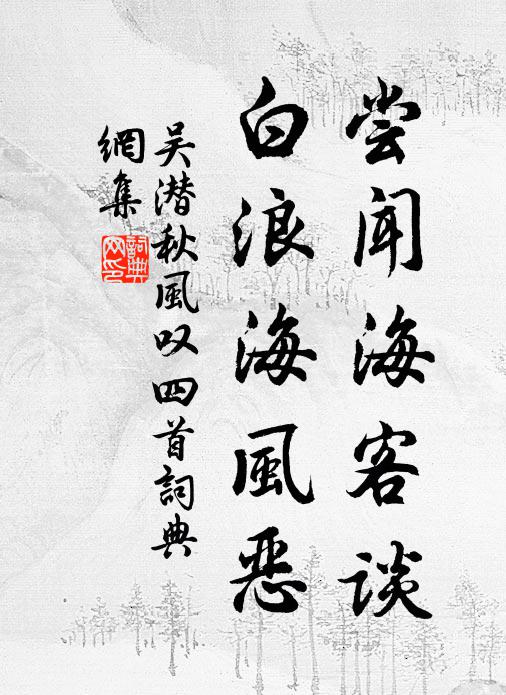 尝闻海客谈
白浪海風恶
吴潜秋風叹四首詞典
網集
詞典网印